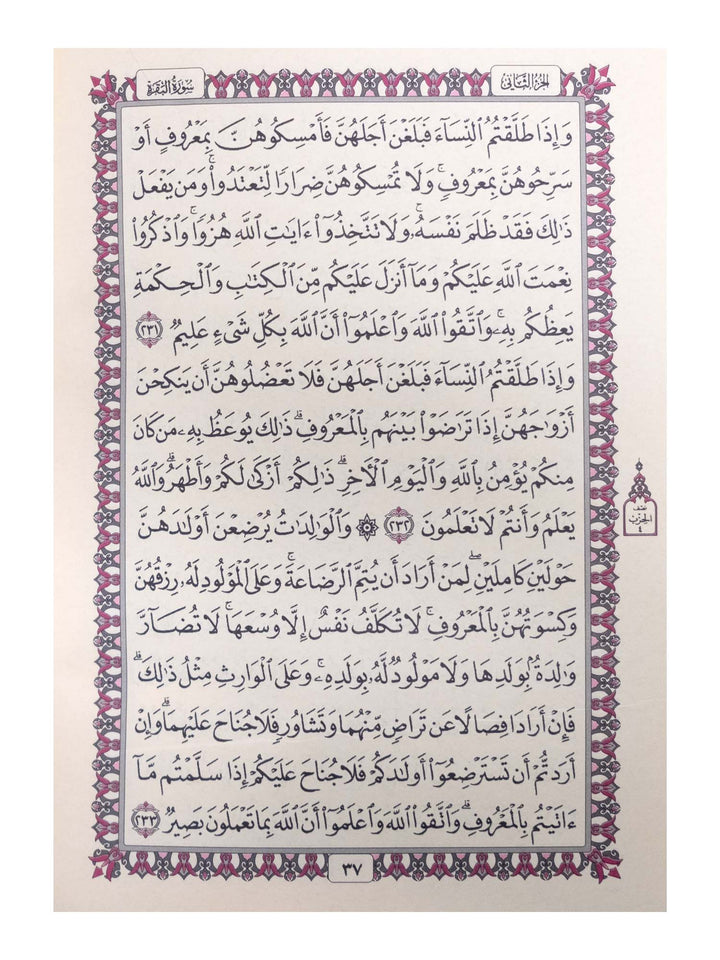 سُورَةُ البَقَرَةِ
الجُزْءُ الثَّانِي
وَإِذَا طَلَّقْتُمُ ٱلنِّسَآءَ فَبَلَغْنَ أَجَلَهُنَّ فَأَمْسِكُوهُنَّ بِمَعْرُوفٍ أَوْ
سَرِّحُوهُنَّ بِمَعْرُوفٍۚ وَلَا تُمْسِكُوهُنَّ ضِرَارًا لِّتَعْتَدُوا۟ۚ وَمَن يَفْعَلْ
ذَٰلِكَ فَقَدْ ظَلَمَ نَفْسَهُۥۚ وَلَا تَتَّخِذُوٓا۟ ءَايَٰتِ ٱللَّهِ هُزُوًاۚ وَٱذْكُرُوا۟
نِعْمَتَ ٱللَّهِ عَلَيْكُمْ وَمَآ أَنزَلَ عَلَيْكُم مِّنَ ٱلْكِتَٰبِ وَٱلْحِكْمَةِ
يَعِظُكُم بِهِۦۚ وَٱتَّقُوا۟ ٱللَّهَ وَٱعْلَمُوٓا۟ أَنَّ ٱللَّهَ بِكُلِّ شَىْءٍ عَلِيمٌ ٢٣١
وَإِذَا طَلَّقْتُمُ ٱلنِّسَآءَ فَبَلَغْنَ أَجَلَهُنَّ فَلَا تَعْضُلُوهُنَّ أَن يَنكِحْنَ
أَزْوَٰجَهُنَّ إِذَا تَرَٰضَوْا۟ بَيْنَهُم بِٱلْمَعْرُوفِۗ ذَٰلِكَ يُوعَظُ بِهِۦ مَن كَانَ
مِنكُمْ يُؤْمِنُ بِٱللَّهِ وَٱلْيَوْمِ ٱلْءَاخِرِۗ ذَٰلِكُمْ أَزْكَىٰ لَكُمْ وَأَطْهَرُۗ وَٱللَّهُ
يَعْلَمُ وَأَنتُمْ لَا تَعْلَمُونَ ٢٣٢ ۞ وَٱلْوَٰلِدَٰتُ يُرْضِعْنَ أَوْلَٰدَهُنَّ
حَوْلَيْنِ كَامِلَيْنِۖ لِمَنْ أَرَادَ أَن يُتِمَّ ٱلرَّضَاعَةَۚ وَعَلَى ٱلْمَوْلُودِ لَهُۥ رِزْقُهُنَّ
وَكِسْوَتُهُنَّ بِٱلْمَعْرُوفِۚ لَا تُكَلَّفُ نَفْسٌ إِلَّا وُسْعَهَاۚ لَا تُضَآرَّ
وَٰلِدَةٌۢ بِوَلَدِهَا وَلَا مَوْلُودٌ لَّهُۥ بِوَلَدِهِۦۚ وَعَلَى ٱلْوَارِثِ مِثْلُ ذَٰلِكَۗ
فَإِنْ أَرَادَا فِصَالًا عَن تَرَاضٍ مِّنْهُمَا وَتَشَاوُرٍ فَلَا جُنَاحَ عَلَيْهِمَاۗ وَإِنْ
أَرَدتُّمْ أَن تَسْتَرْضِعُوٓا۟ أَوْلَٰدَكُمْ فَلَا جُنَاحَ عَلَيْكُمْ إِذَا سَلَّمْتُم مَّآ
ءَاتَيْتُم بِٱلْمَعْرُوفِۗ وَٱتَّقُوا۟ ٱللَّهَ وَٱعْلَمُوٓا۟ أَنَّ ٱللَّهَ بِمَا تَعْمَلُونَ بَصِيرٌ ٢٣٣
نصف
الحزب
٤
٣٧